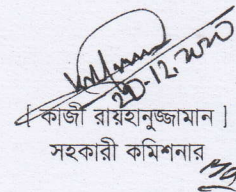 20.12.2020
[ কাজী রায়হানুজ্জামান ]
সহকারী কমিশনার